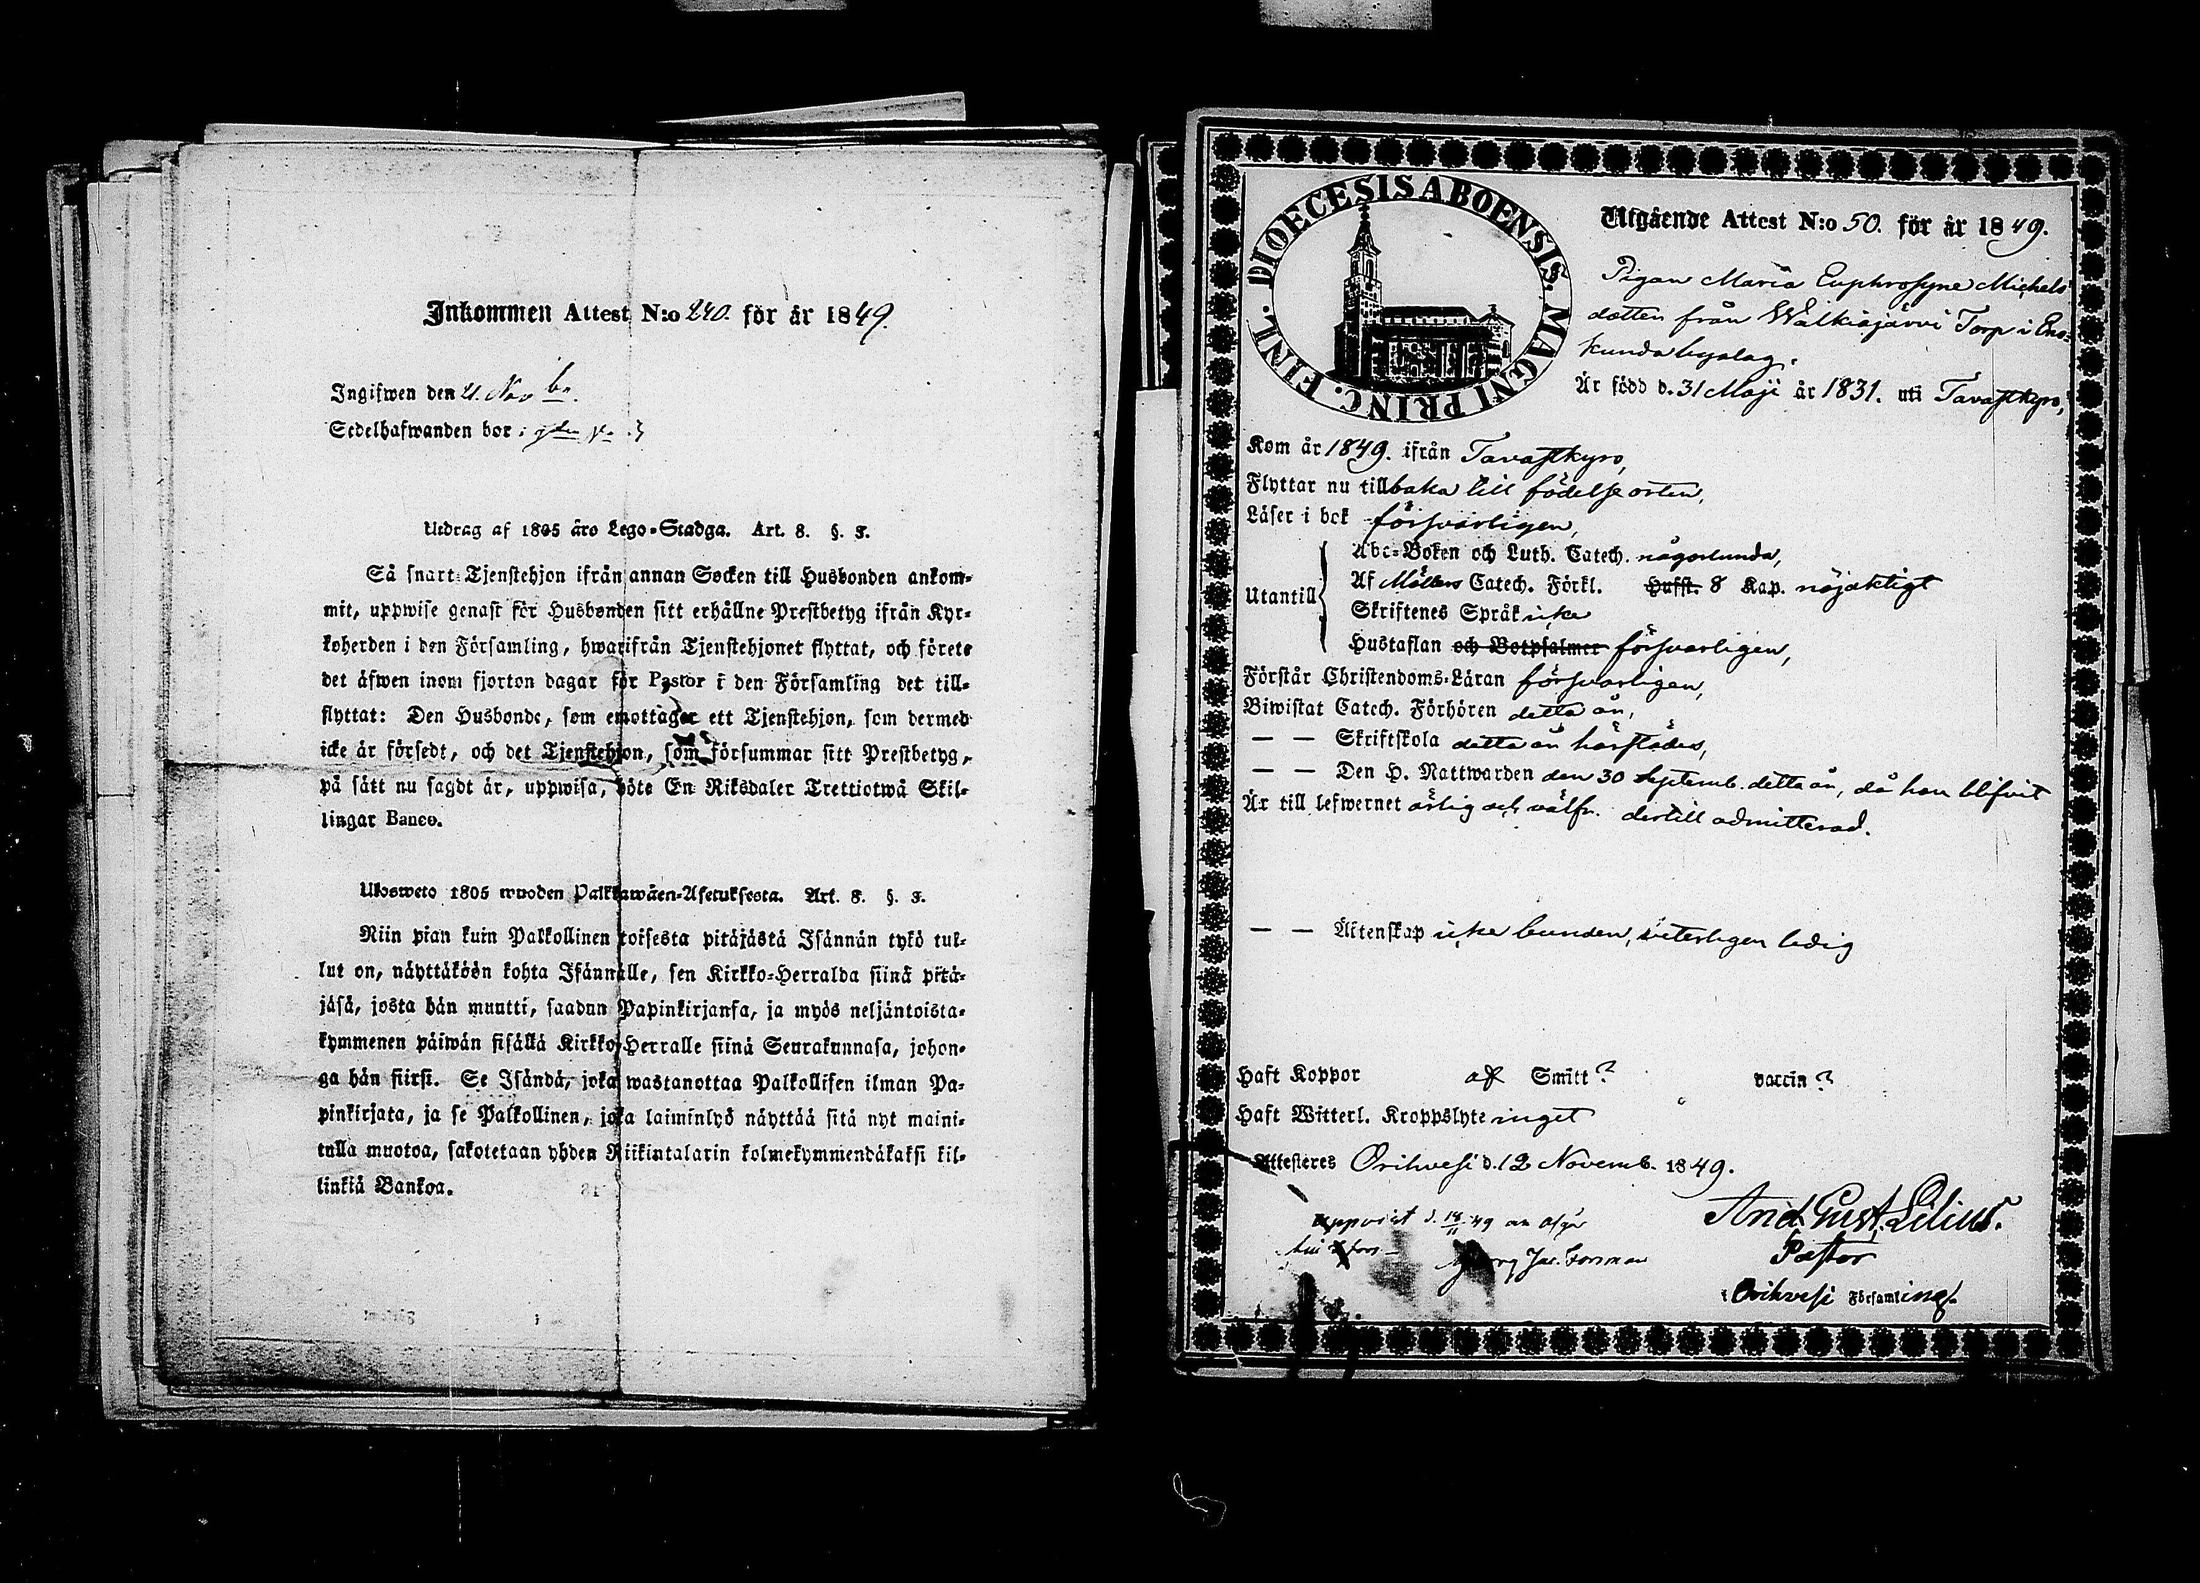 Inkommen Attest N:o 240. för år 1849.
Ingifwen den 21. Novbr.
Sedelhafwanden bor i
Utdrag af 1805 års Lego-Stadga. Art. 8. §. 3.
Så snart Tjenstehjon ifrån annan Socken till Husbonden ankom-
mit, uppwise genast för Husbonden sitt erhållne Prestbetyg ifrån Kyr-
koherden i den Församling, hwarifrån Tjenstehjonet flyttat, och förete
det äfwen inom fjorton dagar för Pastor i den Församling det till-
flyttat: Den Husbonde, som emottager ett Tjenstehjon, som dermed
icke är försedt, och det Tjenstehjon, som försummar sitt Prestbetyg,
på sätt nu sagdt är, uppwisa, böte En Riksdaler Trettiotwå Skil-
lingar Banco.
Ulosweto 1805 wuoden Palkkawäen-Asetuksesta. Art. 8. §. 3.
Niin pian kuin Palkollinen toisesta pitäjästä Isännän tykö tul-
lut on, näyttäköön kohta Isännälle, sen Kirkko-Herralda siinä pitä-
jäsä, josta hän muutti, saadun Papinkirjansa, ja myös neljäntoista-
kymmenen päiwän sisällä Kirkko-Herralle siinä Seurakunnasa, johon-
ga hän siirsi. Se Isändä, joka wastanottaa Palkollisen ilman Pa-
pinkirjata, ja se Palkollinen, joka laiminlyö näyttää sitä nyt maini-
tulla muotoa, sakotetaan yhden Riikintalarin kolmekymmendäkaksi kil-
linkiä Bankoa.
DIOECESIS ABOENSIS. MAGNI PRINC. FINL.
Utgående Attest N:o 50. för år 1849.
Pigan Maria Euphrosyne Michels
dotter från Walkiajärvi Torp i Ena-
kunda byalag.
Är född d. 31 Maji år 1831. uti Tavastkyro,
Kom år 1849. ifrån Tavastkyro,
Flyttar nu tillbaka till födelse orten,
Läser i bok försvarligen,
Utantill
Abc-Boken och Luth. Catech. någorlunda,
Af Möllers Catech. Förkl. Hufst. 8 Kap. nöjaktigt
Skriftenes Språk icke
Hustaflan och Botpsalmer försvarligen,
Förstår Christendoms-Läran försvarligen,
Biwistat Catech. Förhören detta år,
— — Skriftskola detta år härstädes,
— — Den H. Nattwarden den 30 Septemb. detta år, då hon blifvit
Är till lefwernet ärlig och välfr. dertill admitterad.
— — Äktenskap icke bunden, veterligen ledig
Haft Koppor af Smitt? vaccin?
Haft Witterl. Kroppslyte inget
Attesteres Orihvesi d. 12 Novemb. 1849.
And. Gust. Lilius.
Pastor
i Orihvesi Församling.
Uppvist d. 18/11 49 an
Georg Jac. Forsman